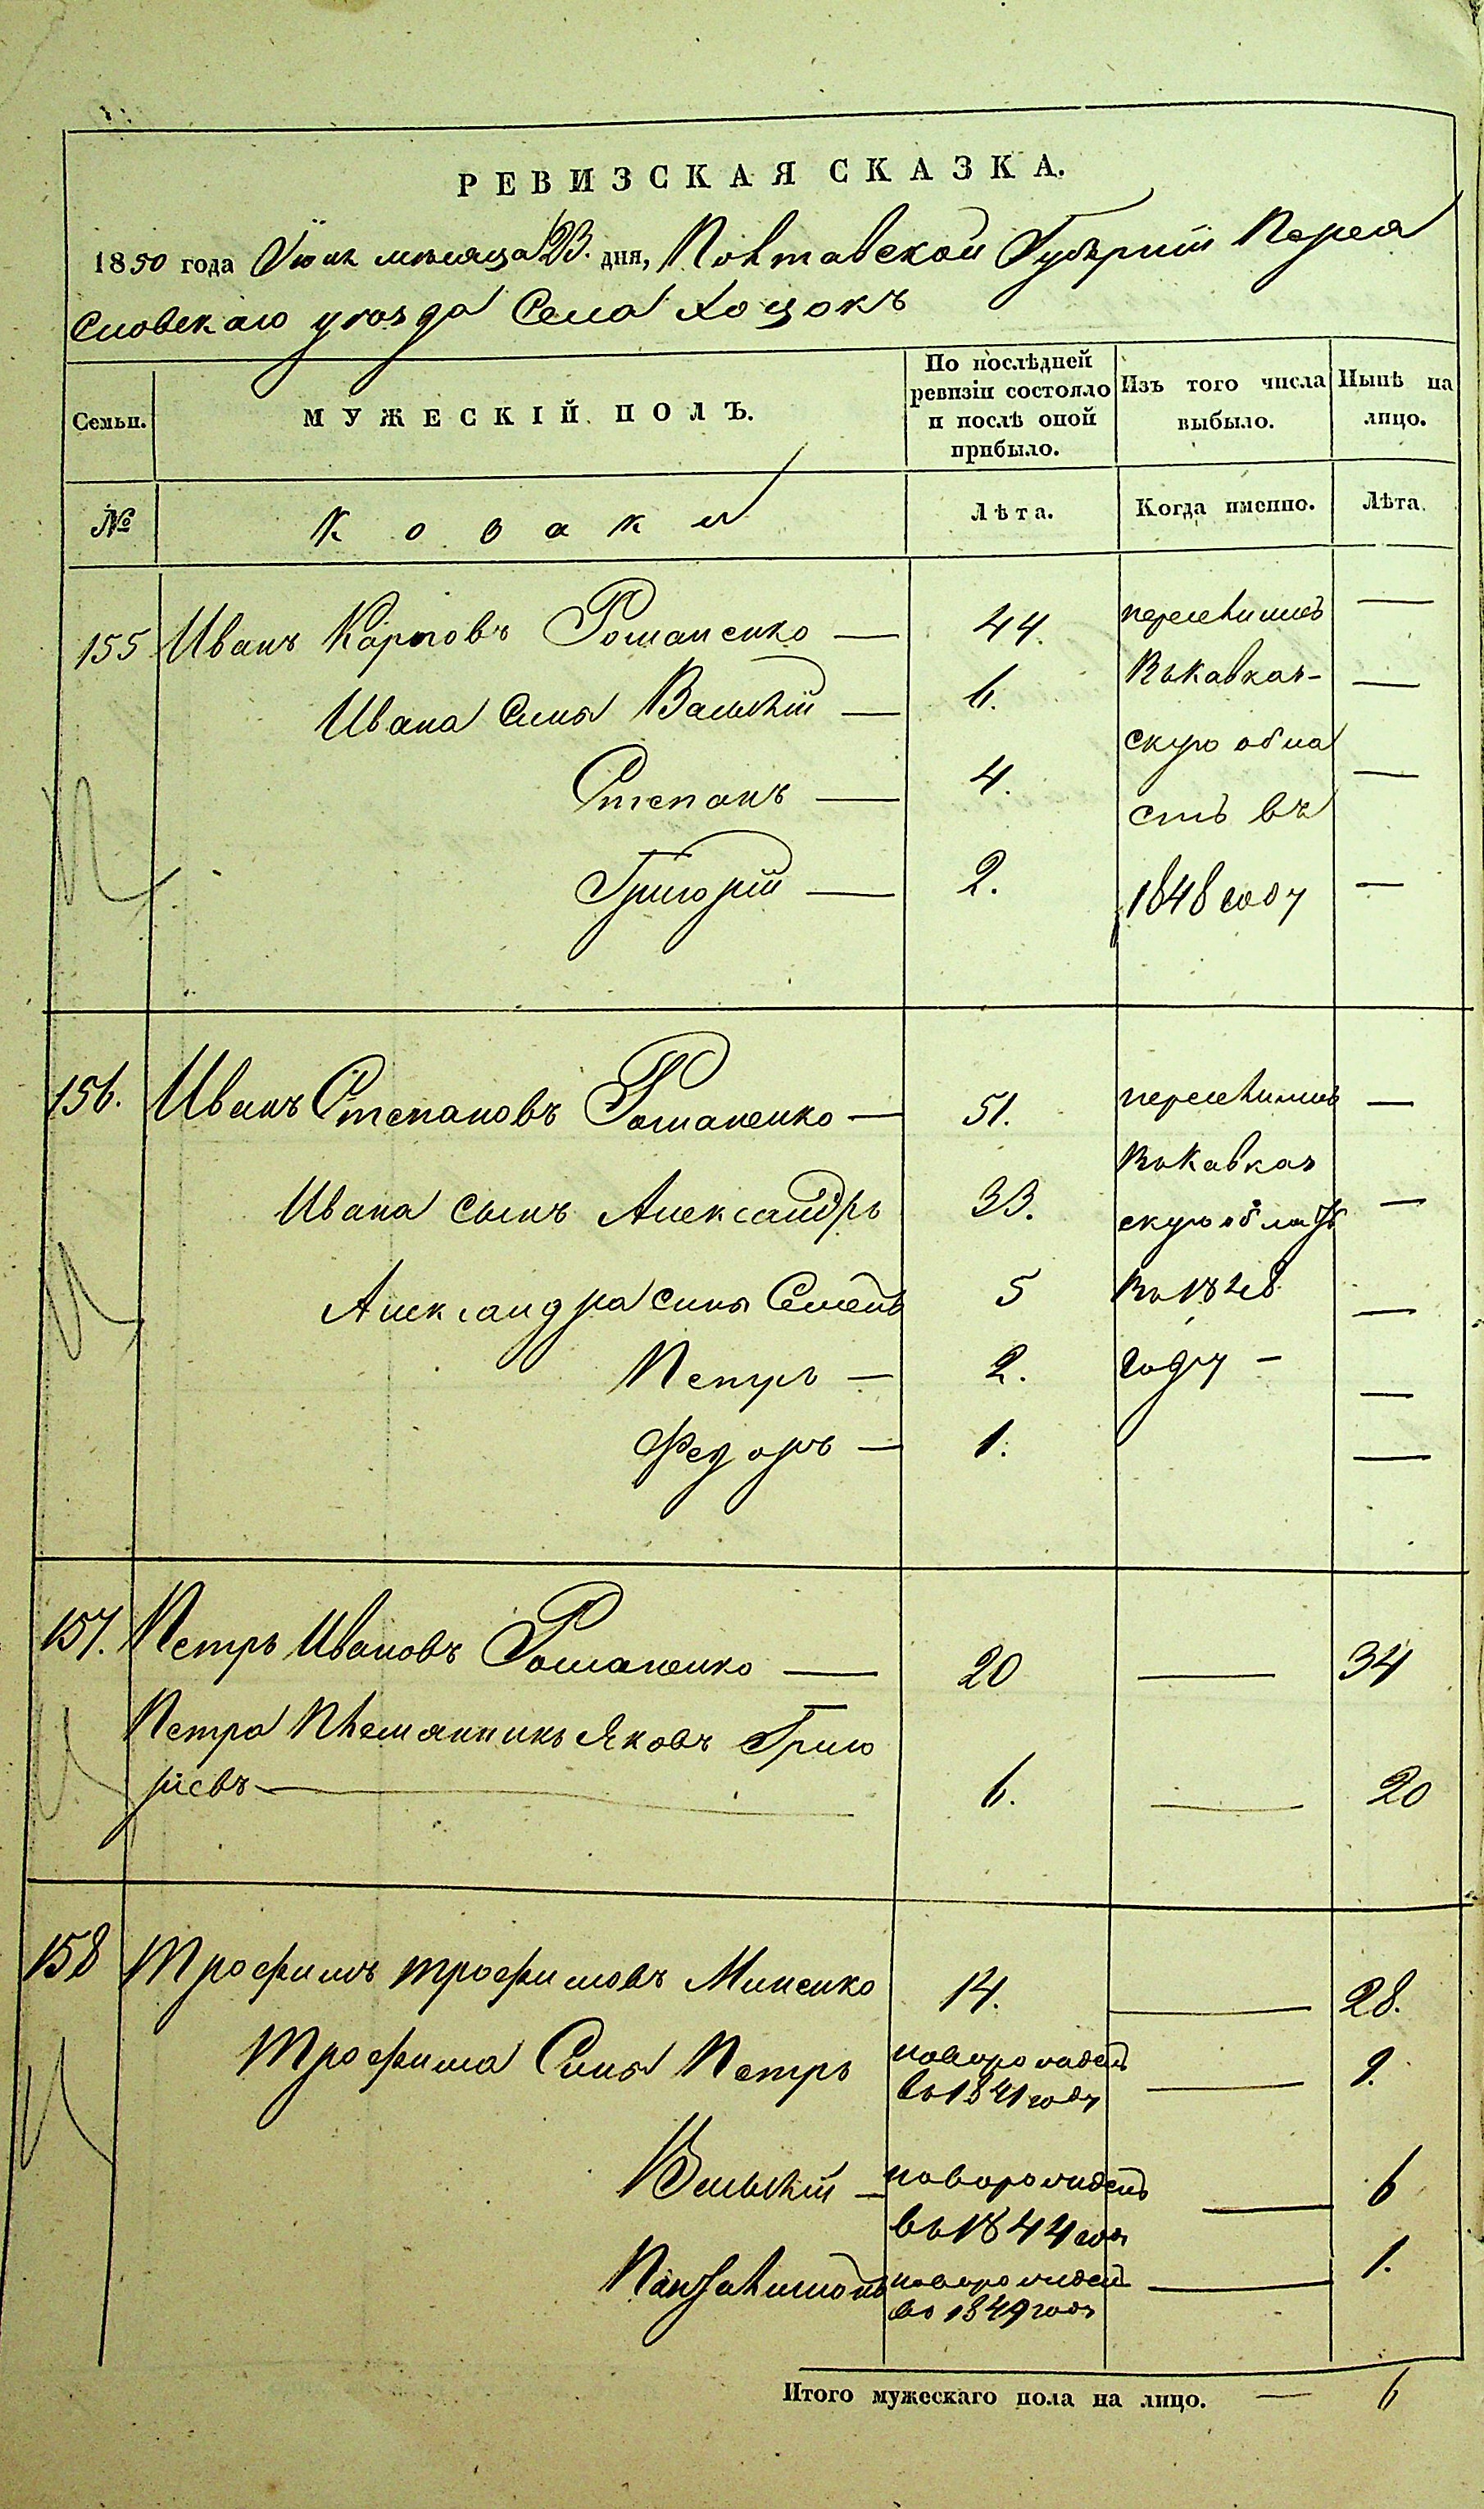 РЕВИЗСКАЯ СКАЗКА.
1850 года Июня месяца 23. дня, Полтавской Губернiи Перея
словскаго уезда Села Хоцокъ
Семьи.
МУЖЕСКIЙ ПОЛЪ.
По послѣдней ревизiи состояло и послѣ оной прибыло.
Изъ того числа выбыло.
Нынѣ на лицо.
№
Козаки
Лѣта.
Когда именно.
Лѣта.
155 Иванъ Карповъ Романенко — 44. переселились —
Ивана Сыны Василiй — 6. въ Кавказ- —
Степанъ — 4. скую обла —
сть въ
Григорiй — 2. 1848 году —
156. Иванъ Степановъ Романенко — 51. переселились —
въ Кавказ
Ивана сынъ Александръ 33. скую область —
Александра сины Семенъ 5 въ 1848 —
Петръ — 2. году — —
Федоръ — 1. —
157. Петръ Ивановъ Романенко — 20 — 34
Петра племянникъ Яковъ Григо
рiевъ — 6. — 20
158 Трофимъ Трофимовъ Миненко 14. — 28.
Трофима Сины Петръ новорожденъ въ 1841 году — 9.
Василiй — новорожденъ въ 1844 году — 6
Пантелимонъ новорожденъ въ 1849 году — 1.
Итого мужескаго пола на лицо. — 6